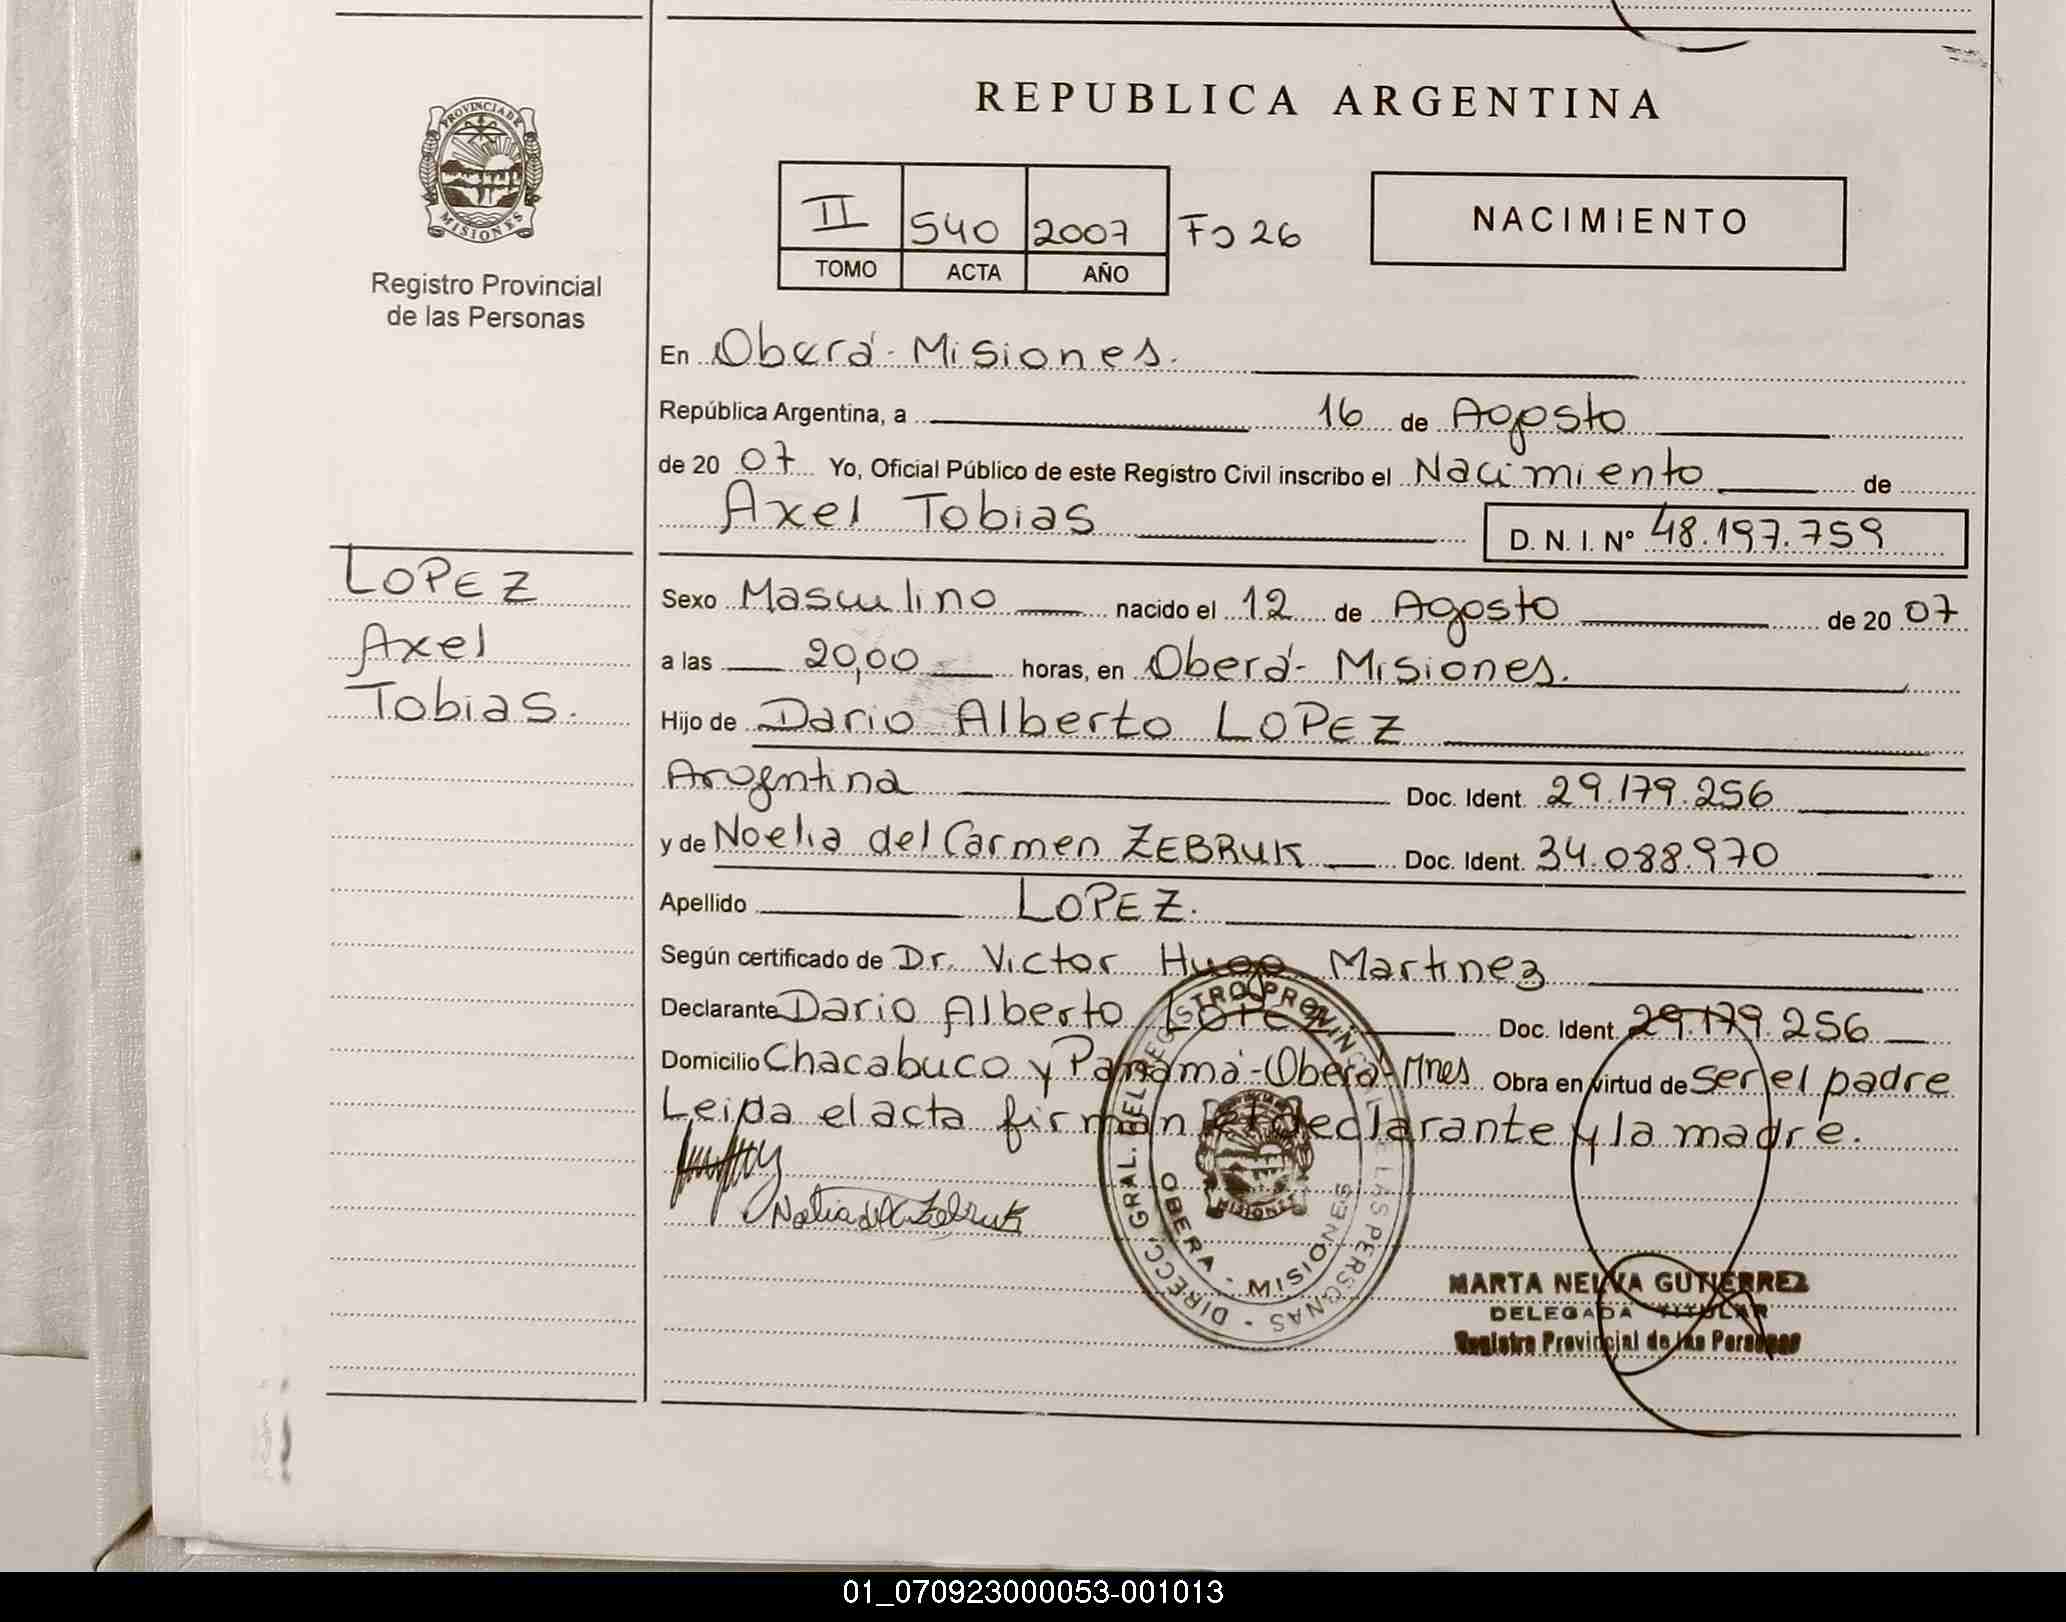 REPUBLICA ARGENTINA
PROVINCIA DE
MISIONES
Registro Provincial
de las Personas
II 540 2007 Fo 26
TOMO ACTA AÑO
NACIMIENTO
En Oberá - Misiones.
República Argentina, a 16 de Agosto
de 20 07 Yo, Oficial Público de este Registro Civil inscribo el Nacimiento de
Axel Tobias D. N. I. Nº 48.197.759
LOPEZ
Axel
Tobias.
Sexo Masculino nacido el 12 de Agosto de 20 07
a las 20,00 horas, en Oberá - Misiones.
Hijo de Dario Alberto LOPEZ
Argentina Doc. Ident. 29.179.256
y de Noelia del Carmen ZEBRUK Doc. Ident. 34.088.970
Apellido LOPEZ.
Según certificado de Dr. Victor Hugo Martinez
Declarante Dario Alberto LOPEZ Doc. Ident. 29.179.256
Domicilio Chacabuco y Panamá - Oberá - Mnes Obra en virtud de ser el padre
Leida el acta firman el declarante y la madre.
DIRECC. GRAL. DEL REGISTRO PROVINCIAL DE LAS PERSONAS -
OBERA - MISIONES
MISIONES
MARTA NELVA GUTIERREZ
DELEGADA TITULAR
Registro Provincial de las Personas
01_070923000053-001013